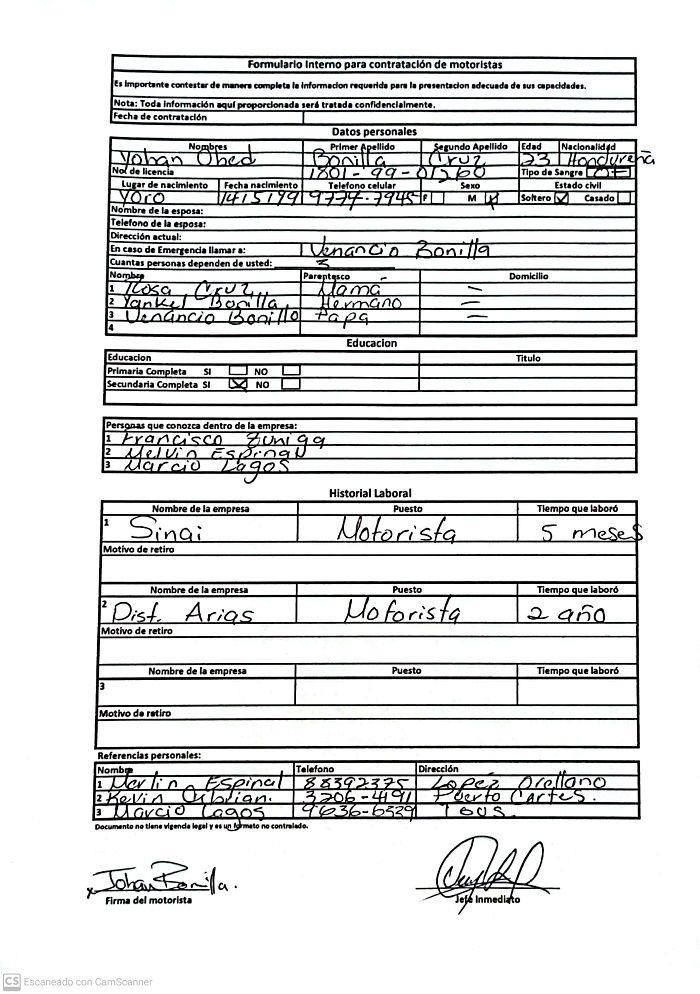 Formulario Interno para contratación de motoristas
Es importante contestar de manera completa la informacion requerida para la presentacion adecuada de sus capacidades.
Nota: Toda información aquí proporcionada será tratada confidencialmente.
Fecha de contratación
Datos personales
Nombres Primer Apellido Segundo Apellido Edad Nacionalidad
Yohan Obed Bonilla Cruz 23 Hondureña
No. de licencia 1801-99-01260 Tipo de Sangre OT
Lugar de nacimiento Fecha nacimiento Telefono celular Sexo Estado civil
Yoro 14/5/99 9774-7945 F M X Soltero Casado
Nombre de la esposa:
Telefono de la esposa:
Dirección actual:
En caso de Emergencia llamar a: Venancio Bonilla
Cuantas personas dependen de usted: 3
Nombre Parentesco Domicilio
1 Rosa Cruz Mamá –
2 Yankel Bonilla Hermano –
3 Venancio Bonillo Papa –
4
Educacion
Educacion Titulo
Primaria Completa SI NO
Secundaria Completa SI X NO
Personas que conozca dentro de la empresa:
1 Francisco Zuniga
2 Melvin Espinal
3 Marcio Lagos
Historial Laboral
Nombre de la empresa Puesto Tiempo que laboró
1 Sinai Motorista 5 meses
Motivo de retiro
Nombre de la empresa Puesto Tiempo que laboró
2 Dist. Arias Motorista 2 año
Motivo de retiro
Nombre de la empresa Puesto Tiempo que laboró
3
Motivo de retiro
Referencias personales:
Nombre Telefono Dirección
1 Merlin Espinal 88392375 Lopez Orellano
2 Kevin 3206-4191 Puerto Cortes.
3 Marcio Lagos 9636-6529
Documento no tiene vigencia legal y es un formato no controlado.
x Johan Bonilla.
Firma del motorista Jefe Inmediato
CS Escaneado con CamScanner